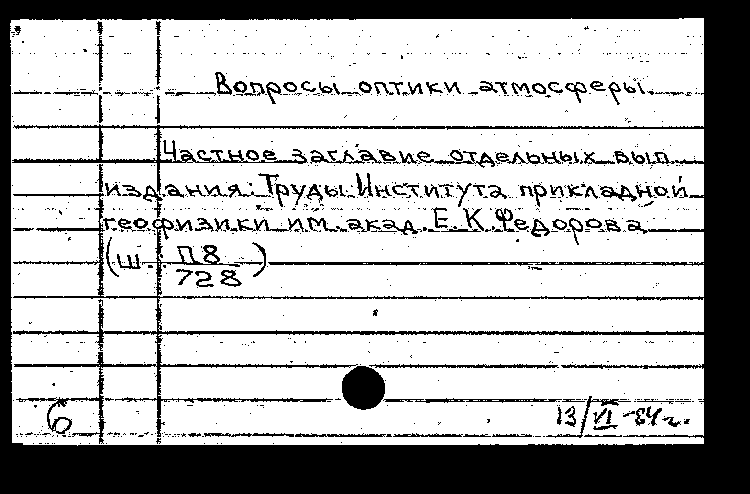 Вопросы оптики атмосферы.
Частное заглавие отдельных вып.
издания: Труды Института прикладной
геофизики им. акад. Е.К. Федорова
(Ш П8/728)
б 13/VI-84 г.